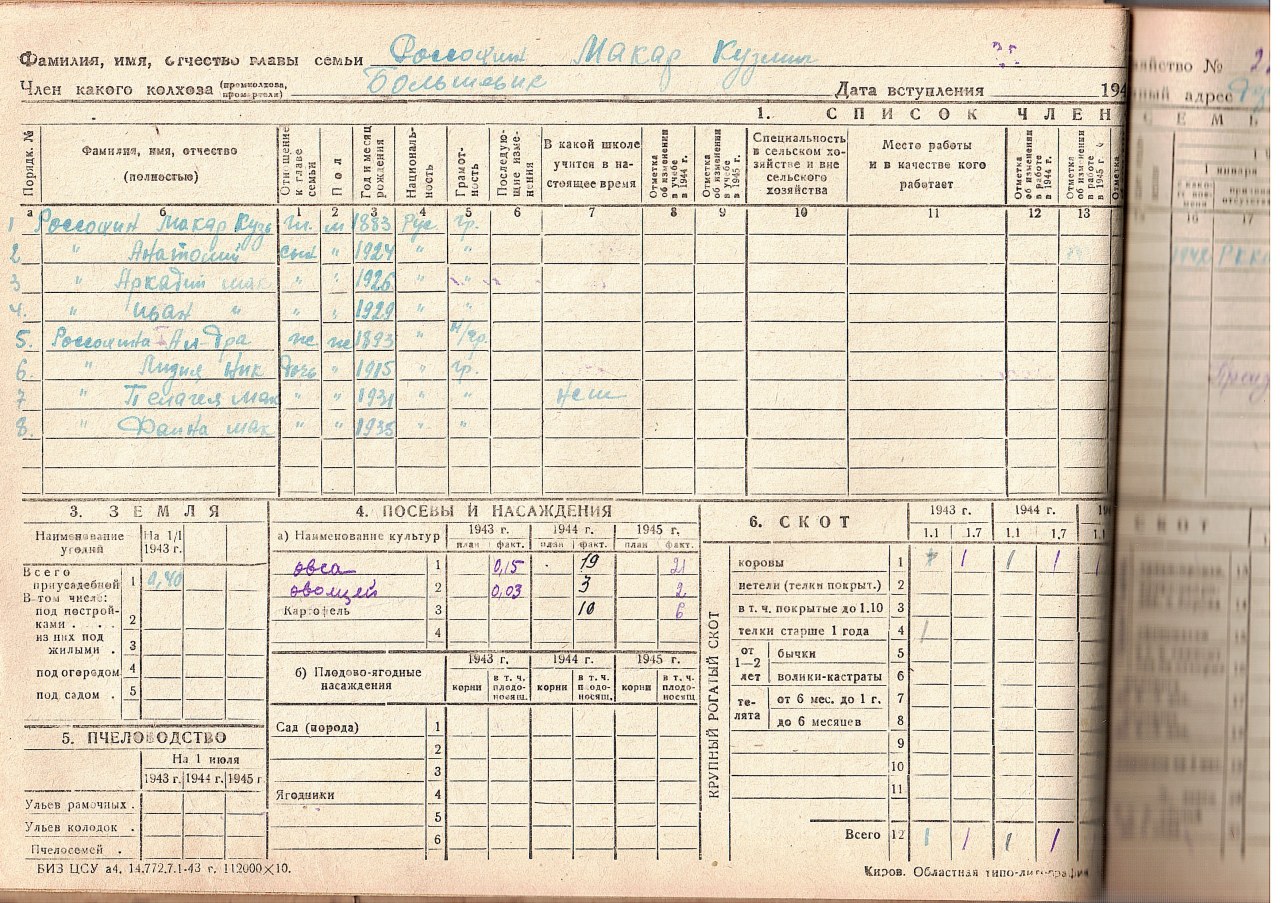 Фамилия, имя, отчество главы семьи Россохин Макар Кузьмич
Член какого колхоза (промколхоза, пром-артели) Большевик Дата вступления 194
1. СПИСОК ЧЛЕН
Порядк. № Фамилия, имя, отчество (полностью) Отношение к главе семьи Пол Год и месяц рождения Националь-ность Грамот-ность Последую-щие изме-нения В какой школе учится в на-стоящее время Отметка об изменении в учебе в 1944 г. Отметка об изменении в учебе в 1945 г. Специальность в сельском хо-зяйстве и вне сельского хозяйства Место работы и в качестве кого работает Отметка об изменении в работе в 1944 г. Отметка об изменении в работе в 1945 г.
а б 1 2 3 4 5 6 7 8 9 10 11 12 13 16 17
1 Россохин Макар Кузь гл. м 1883 Рус гр.
2. " Анатолий сын " 1924 " "
3 " Аркадий мак " " 1926 "
4. " Иван " " " 1929 " "
5. Россохина Ал-дра ж ж 1893 " н/гр.
6. " Лидия Ник дочь " 1915 " гр.
7 " Пелагея Мак " " 1931 " " нет
8. " Фаина мак " " 1935 " "
3. ЗЕМЛЯ
Наименование угодий На 1/I 1943 г.
Всего приусадебной 1 0,40
В том числе:
под построй-ками . . . . 2
из них под жилыми . 3
под огородом 4
под садом . 5
5. ПЧЕЛОВОДСТВО
На 1 июля
1943 г. 1944 г. 1945 г
Ульев рамочных .
Ульев колодок .
Пчелосемей .
4. ПОСЕВЫ И НАСАЖДЕНИЯ
а) Наименование культур 1943 г. 1944 г. 1945 г.
план факт. план факт. план факт.
овса 1 0,15 19 21
овощей 2 0,03 3 2
Картофель 3 10 6
4
б) Плодово-ягодные насаждения 1943 г. 1944 г. 1945 г.
корни в т. ч. плодо-носящ. корни в т. ч. плодо-носящ. корни в т. ч. плодо-носящ
Сад (порода) 1
2
3
Ягодники 4
5
6
6. СКОТ 1943 г. 1944 г.
1.1 1.7 1.1 1.7 1.1
КРУПНЫЙ РОГАТЫЙ СКОТ
коровы 1 1 1 1 1
нетели (телки покрыт.) 2
в т. ч. покрытые до 1.10 3
телки старше 1 года 4 1
от 1—2 лет бычки 5
волики-кастраты 6
те-лята от 6 мес. до 1 г. 7
до 6 месяцев 8
9
10
11
Всего 12 1 1 1 1
БИЗ ЦСУ а4. 14.772.7.1-43 г. 112000×10.
Киров. Областная типо-литография